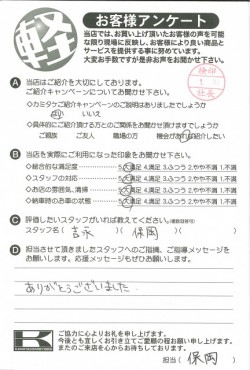 軽
お客様アンケート
当店では、お買い上げ頂いたお客様の声を可能
な限り現場に反映し、お客様により良い商品と
サービスを提供する事に努めています。
大変お手数ですが是非お声をお聞かせ下さい。
検印
社長
A 当店はご紹介を大切にしております。
ご紹介キャンペーンについてお聞かせ下さい。
◇カミタケご紹介キャンペーンのご説明はありましたでしょうか
はい いいえ
◇具体的にご紹介頂ける方とのご関係をお聞かせ頂けますでしょうか
ご親族 ご友人 職場の方 機会があれば紹介したい
B 当店を実際にご利用になった印象をお聞かせ下さい。
◇総合的な満足度 5.大満足 4.満足 3.ふつう 2.やや不満 1.不満
◇スタッフの対応 5.大満足 4.満足 3.ふつう 2.やや不満 1.不満
◇お店の雰囲気、清掃 5.大満足 4.満足 3.ふつう 2.やや不満 1.不満
◇納車時のお車の状態 5.大満足 4.満足 3.ふつう 2.やや不満 1.不満
C 評価したいスタッフがいれば教えてください。(複数回答可)
スタッフ名 ( 吉永 ) ( 保岡 ) ( )
D 担当させて頂きましたスタッフへのご指摘、ご指導メッセージを
お願いします。応援メッセージもぜひお願いします。
ありがとうございました。
K
ご協力に心よりお礼を申し上げます。
今後とも宜しくお引き立てご愛顧の程お願い申し上げます。
またのご来店を心からお待ちしております。
担当 ( 保岡 )